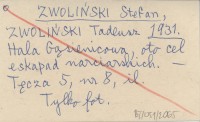 ZWOLIŃSKI Stefan,
ZWOLIŃSKI Tadeusz 1931.
Hala Gąsienicowa, oto cel
eskapad narciarskich. —
Tęcza 5, nr 8, il.
Tylko fot.